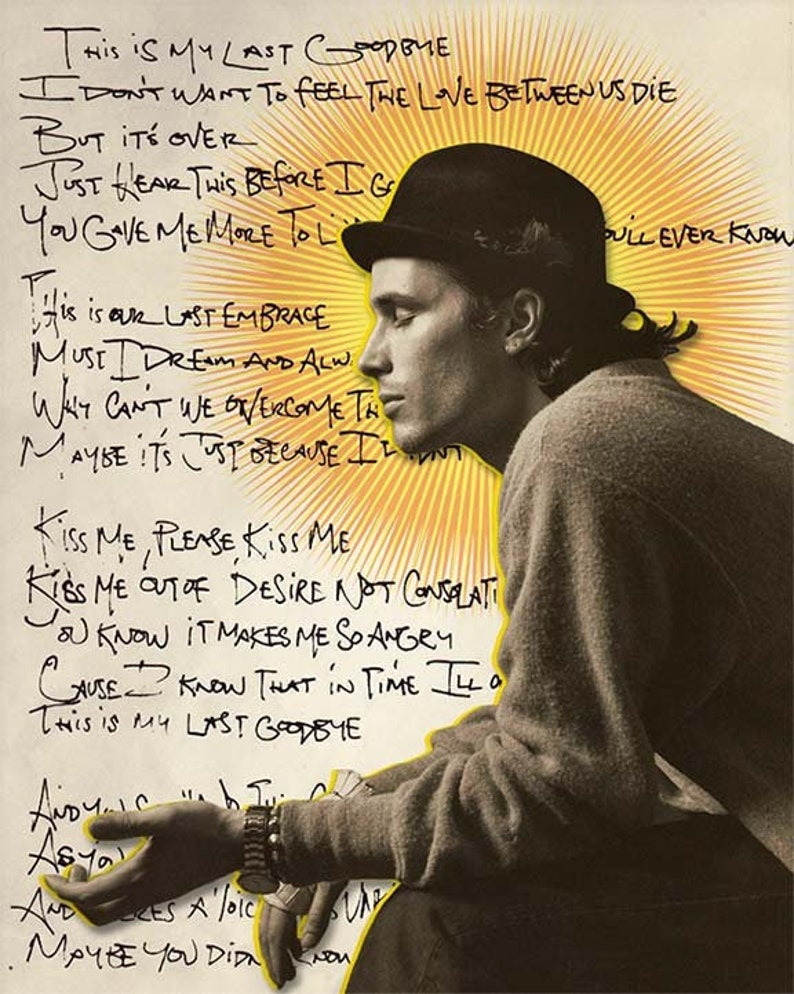 This is my Last Goodbye
I don't want to feel the Love between us die
But it's over
Just Hear This Before I Go
You Gave Me More To Li ouill ever know
This is our Last Embrace
Must I Dream and Alw
Why Can't we overcome Th
Maybe it's Just because I
Kiss Me, Please, Kiss Me
Kiss Me out of Desire Not Consolati
You know it makes me so angry
Cause I know that in time Ill
This is my Last Goodbye
And
As you
And
Maybe you didn know